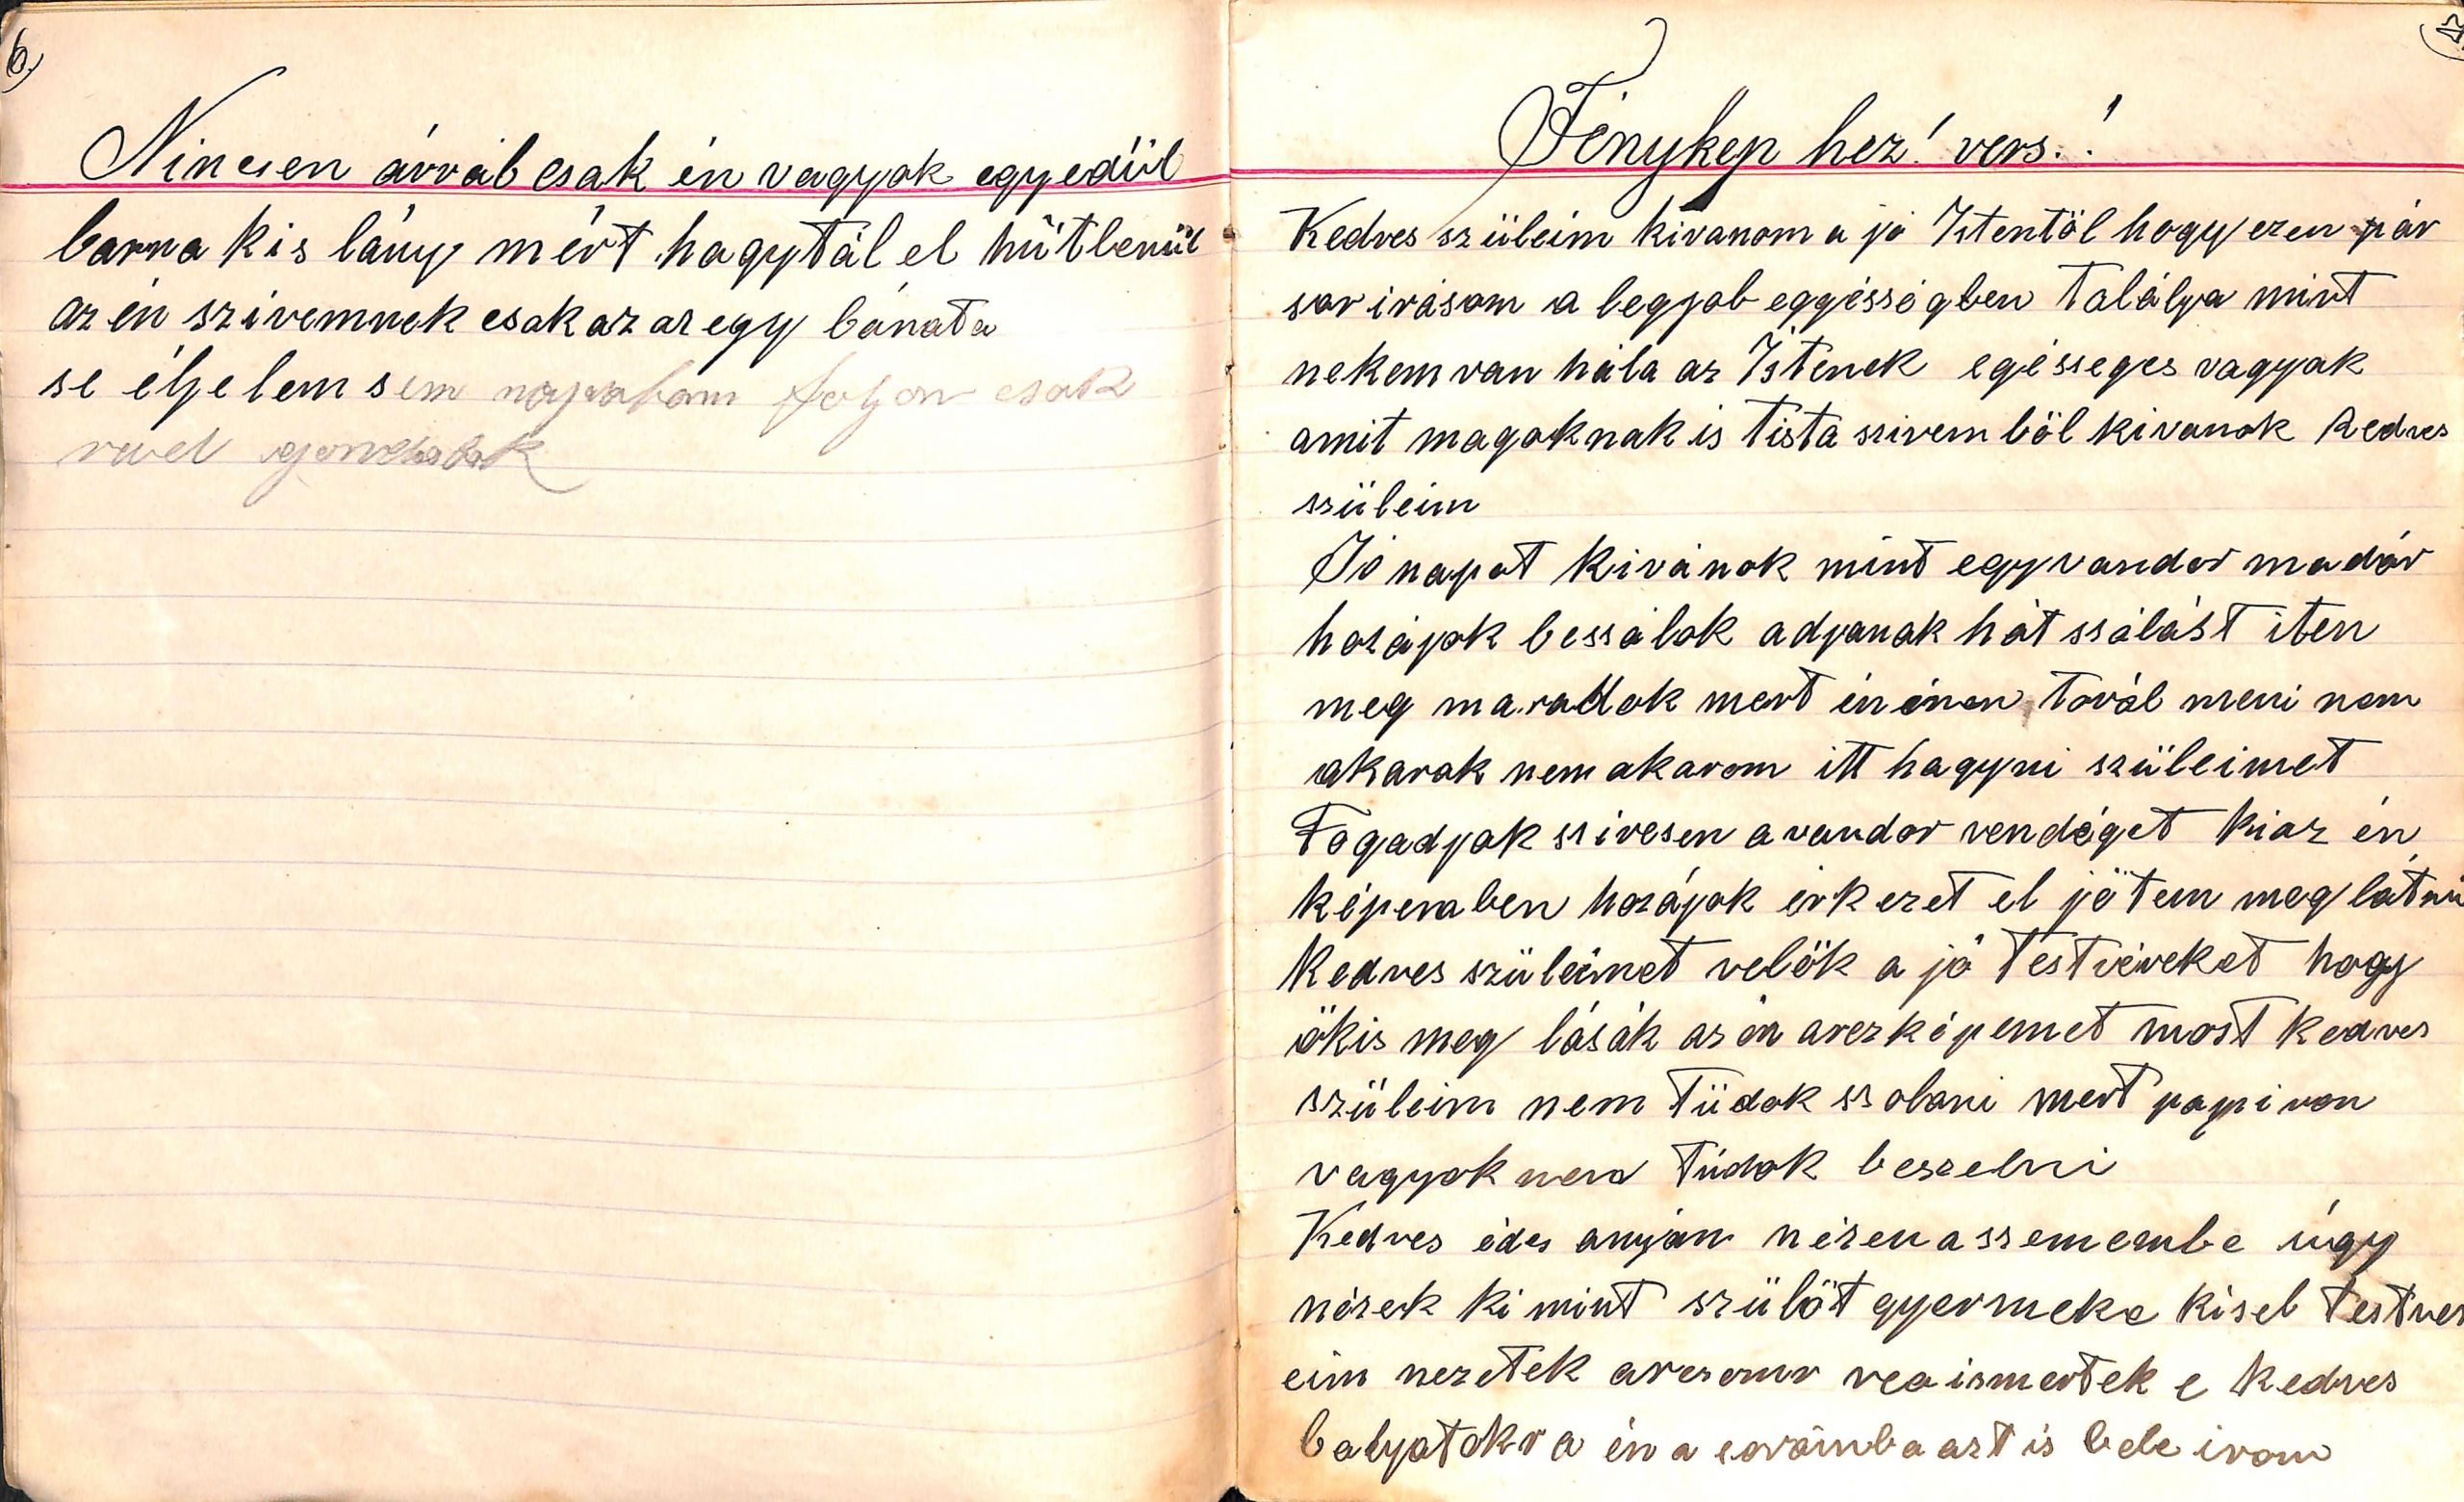 6)
Nincsen árváb csak én vagyok egyedül
barna kis lány mért hagytál el hütlenül
az én szivemnek csak az az egy bánata
se éjelem sem napalom folyon csak
rád gondolok
Fénykep hez! vers.!
Kedves szüleim kivanom a jó Istentöl hogy ezen pár
sor irásom a legjob eggésségben talályа mint
nekem van hála az Istenek egésseges vagyok
amit magoknak is tista szivem böl kivanok kedves
szüleim
Jó napot kivánok mint egy vandor madár
hozájok bessálok adjanak hát ssálást iten
meg maradok mert én inen továb meni nem
akarok nem akarom itt hagyni szüleimet
Fogadjok ssivesen a vandor vendéget ki az én
képemben hozájok érkezet el jötem meg látni
kedves szüleimet velök a jó testvéreket hogy
ökis meg lásák az én arczképemet most kedves
szüleim nem tüdok ssolani mert papiron
vagyok nem tüdok beszelni
Kedves édes anyám nézen a ssemembe úgy
nézek ki mint szülöt gyermeke kiseb testver
eim nezetek arczomr rea ismertek e kedves
batyatokra én a sorāimba azt is bele irom